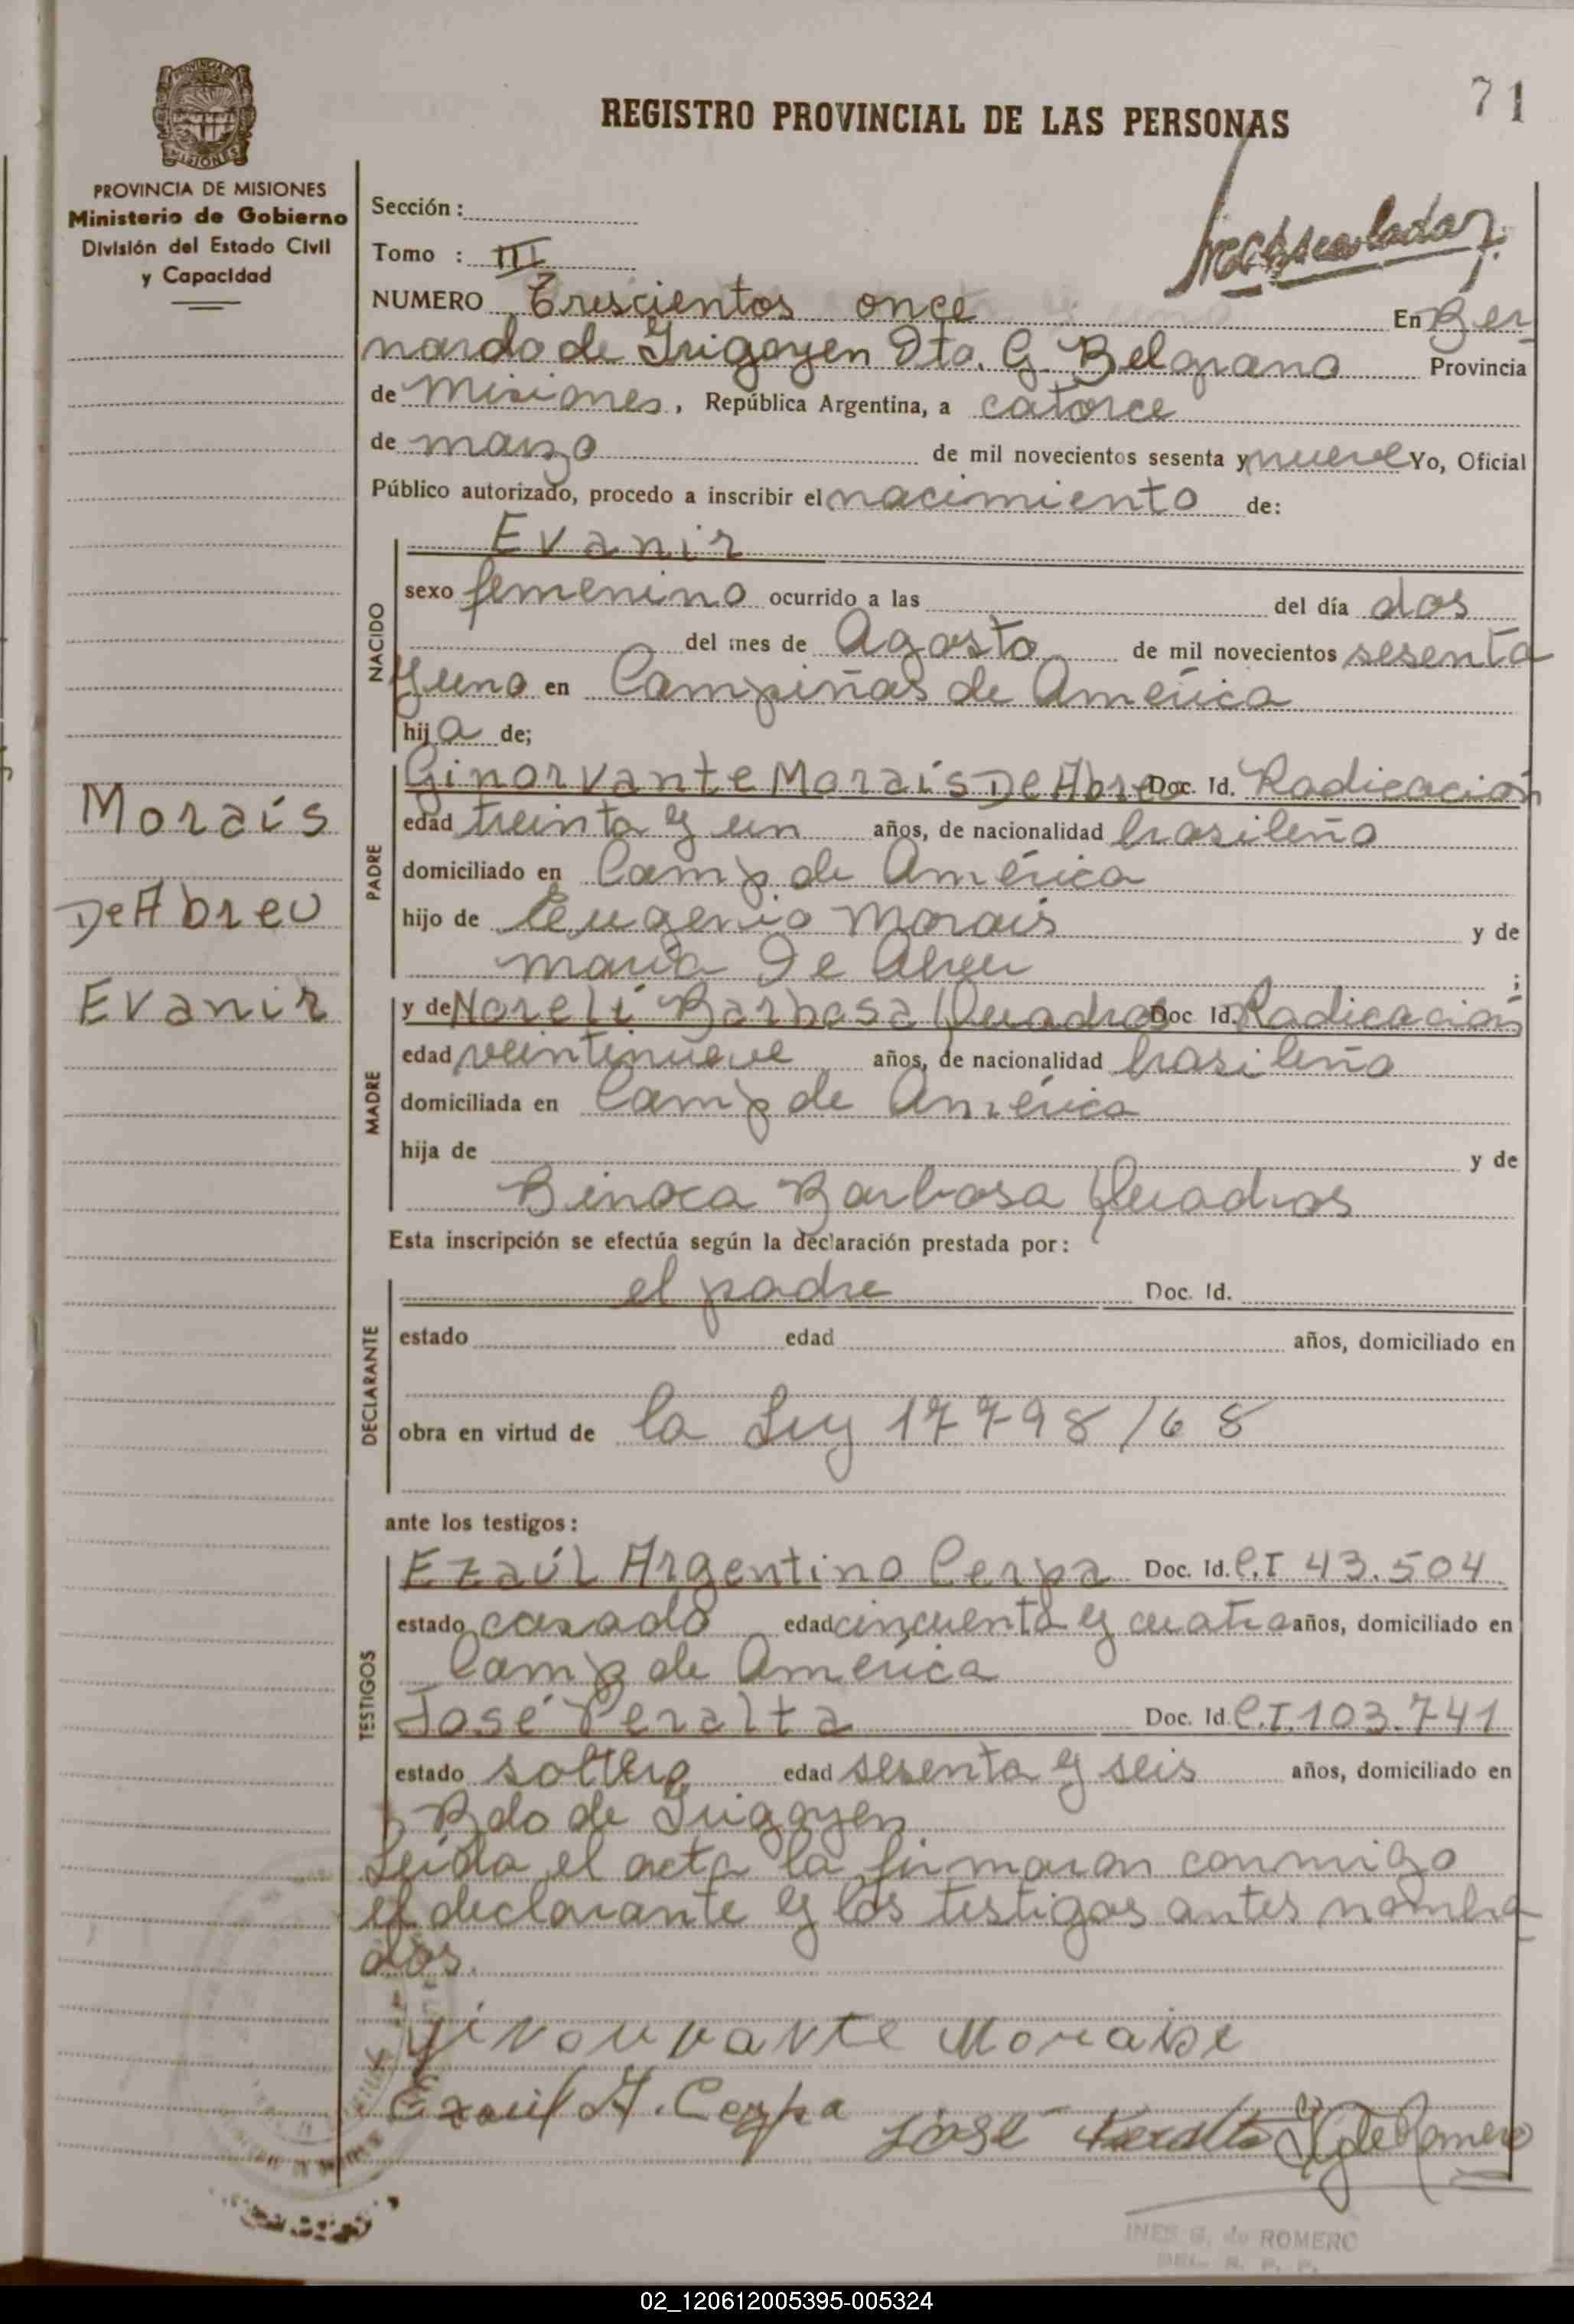 71
REGISTRO PROVINCIAL DE LAS PERSONAS
PROVINCIA DE MISIONES
Ministerio de Gobierno
División del Estado Civil
y Capacidad
Sección :
Tomo : III
NUMERO Trescientos once En Ber
nardo de Irigoyen Dto. G. Belgrano Provincia
de Misiones, República Argentina, a catorce
de marzo de mil novecientos sesenta y nueve Yo, Oficial
Público autorizado, procedo a inscribir el nacimiento de:
NACIDO
Evanir
sexo femenino ocurrido a las del día dos
del mes de Agosto de mil novecientos sesenta
y uno en Campiñas de América
hija de;
Morais
De Abreu
Evanir
PADRE
Ginorvante Morais De Abreu Doc. Id. Radicación
edad treinta y un años, de nacionalidad brasileña
domiciliado en Camp de América
hijo de Eugenio Morais y de
maria De Abreu ;
MADRE
y de Noreli Barbosa Quadros Doc Id. Radicación
edad veintinueve años, de nacionalidad brasileña
domiciliada en Camp de América
hija de y de
Binoca Barbosa Quadros
Esta inscripción se efectúa según la declaración prestada por:
DECLARANTE
el padre Doc. Id.
estado edad años, domiciliado en
obra en virtud de la Ley 17798/68
ante los testigos:
TESTIGOS
Ezaúl Argentino Cerpa Doc. Id. C.I 43.504
estado casado edad cincuenta y cuatro años, domiciliado en
Camp de América
José Peralta Doc. Id. C.I. 103.741
estado soltero edad sesenta y seis años, domiciliado en
Bdo de Irigoyen
Leida el acta la firmaron conmigo
el declarante y los testigos antes nombra
dos.
Ginouvante Moraise
Ezaul A. Cerpa José Peralta I G de Romero
INES G. de ROMERO
DEL. R. P. P.
02_120612005395-005324